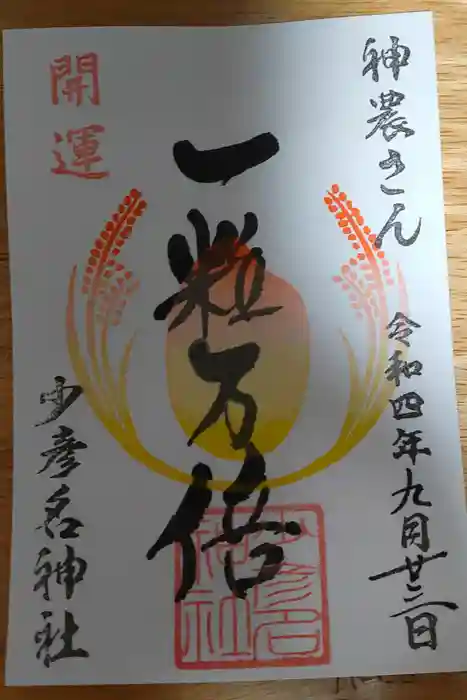 神農さん
令和四年九月廿三日
一粒万倍
開運
少彦名神社
少彦名神社